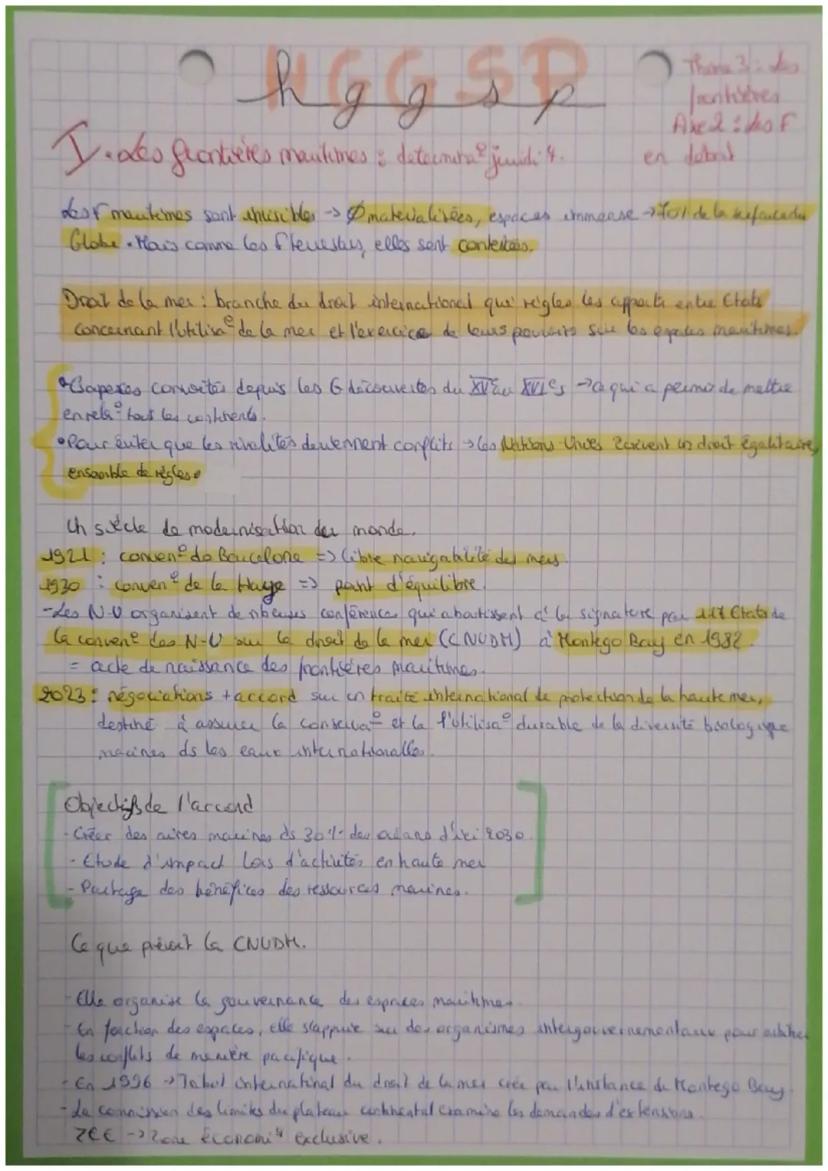 HGGSP
hggsp
Thème 3 : des
frontières
Axe 2 : les F
en débat
I. les frontières maritimes : determinaº juridi4.
Les F maritimes sont invisibles -> Ø materialisées, espaces immense -> 70% de la surface du
Globe. Mais comme les F terrestres, elles sont contestées.
Droit de la mer : branche du droit international qui règles les rapports entre Etats
concernant l'utilisaº de la mer et l'exercice de leurs pouvoirs sur les espaces maritimes.
convoités depuis les G découvertes du XVe au XVIes -> ce qui a permis de mettre
en relaº tous les continents.
• Pour éviter que les rivalités deviennent conflits -> les Nations Unies écrivent un droit égalitaire,
ensemble de règles
Un siècle de modernisation du monde.
1921 : convenº de Barcelone => libre navigabilité des mers.
1930 : convenº de la Haye => point d'équilibre.
- Les N-U organisent de nbeuses conférences qui aboutissent à la signature par 117 Etats de
la convenº des N-U sur le droit de la mer (CNUDM) à Montego Bay en 1982.
= acte de naissance des frontières maritimes.
2023 : négociations + accord sur un traité international de protection de la haute mer,
destiné à assurer la conservaº et la l'utilisaº durable de la diversité biologique
marines ds les eaux internationalles.
Objectifs de l'accord
- Créer des aires marines ds 30% des océans d'ici 2030.
- Etude d'impact lors d'activités en haute mer
- Partage des bénéfices des ressources marines.
Ce que prévoit la CNUDM.
- Elle organise la gouvernance des espaces maritimes.
- En fonction des espaces, elle s'appuie sur des organismes intergouvernementaux pour arbitrer
les conflits de manière pacifique.
- En 1996 -> Tabul international du droit de la mer crée par l'instance de Montego Bay.
- La commission des limites du plateau continental examine les demandes d'extensions.
ZEE -> Zone économi4 exclusive.